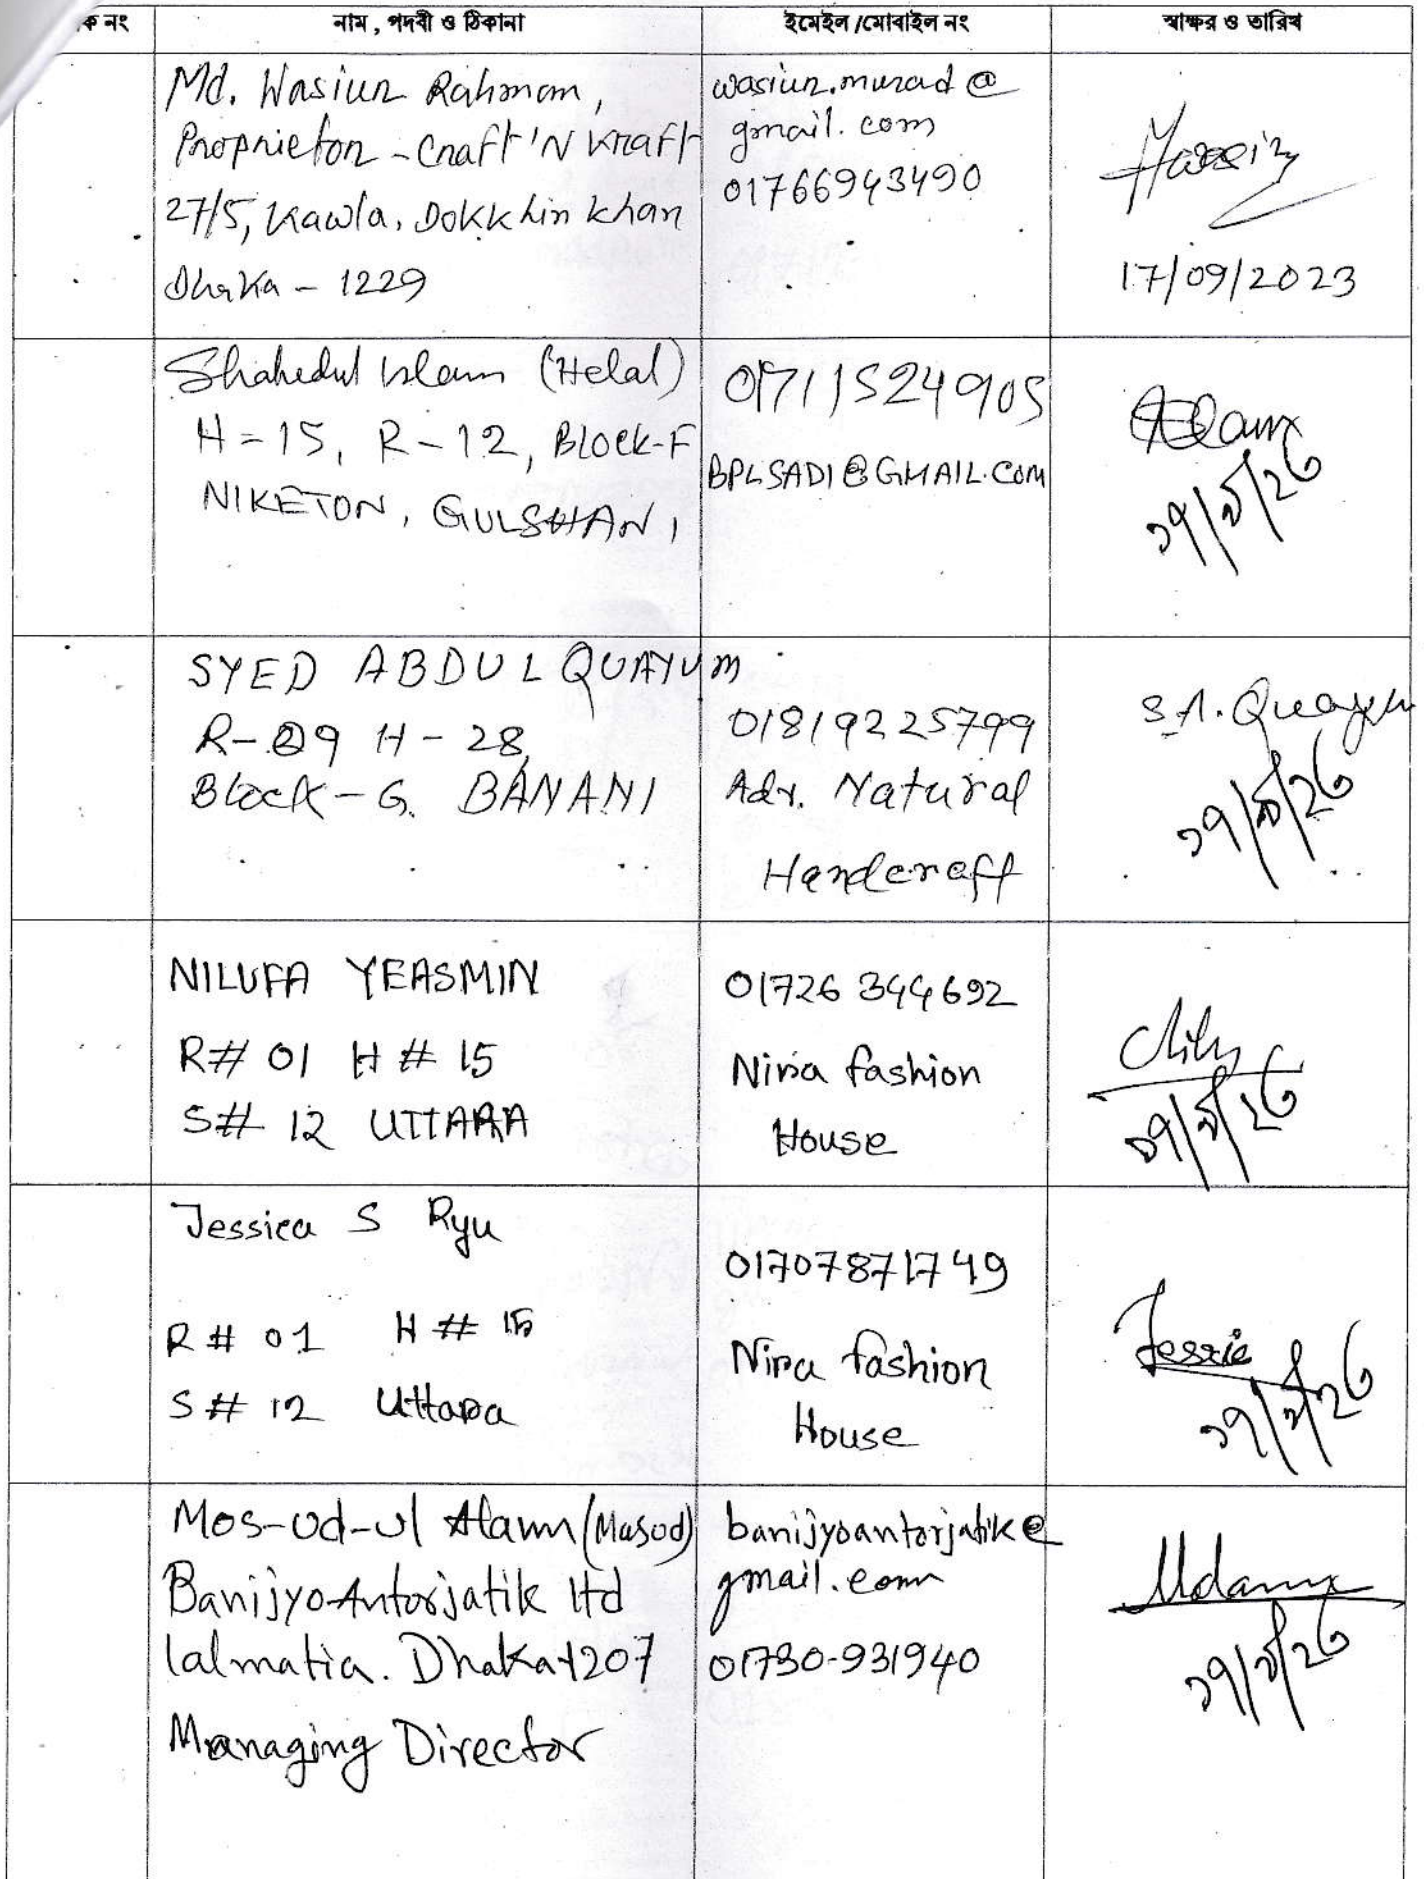 ক নং নাম , পদবী ও ঠিকানা ইমেইল /মোবাইল নং স্বাক্ষর ও তারিখ
Md. Wasiur Rahman,
Proprietor - Craft 'N Kraft
27/5, Kawla, Dokkhin khan
Dhaka - 1229
wasiur.murad @
gmail. com
01766943490
17/09/2023
Shahedul Islam (Helal)
H - 15, R - 12, Block-F
NIKETON, GULSHAN 1
01711524905
BPLSADI@GMAIL.COM
১৭/৯/২৩
SYED ABDUL QUAYUM
R- 09 H - 28,
Block - G. BANANI
01819225799
Adv. Natural
Handcraft
S.A. Quayum
১৭/৯/২৩
NILUFA YEASMIN
R# 01 H # 15
S# 12 UTTARA
01726 344692
Nira fashion
House
১৭/৯/২৩
Jessica S Ryu
R # 01 H # 15
S # 12 Uttara
01707871749
Nira fashion
House
Jessie
১৭/৯/২৩
Mos-ud-ul Alam (Masud)
Banijyo Antorjatik ltd
lalmatia. Dhaka-1207
Managing Director
banijyoantorjatik@
gmail.com
01730-931940
১৭/৯/২৩